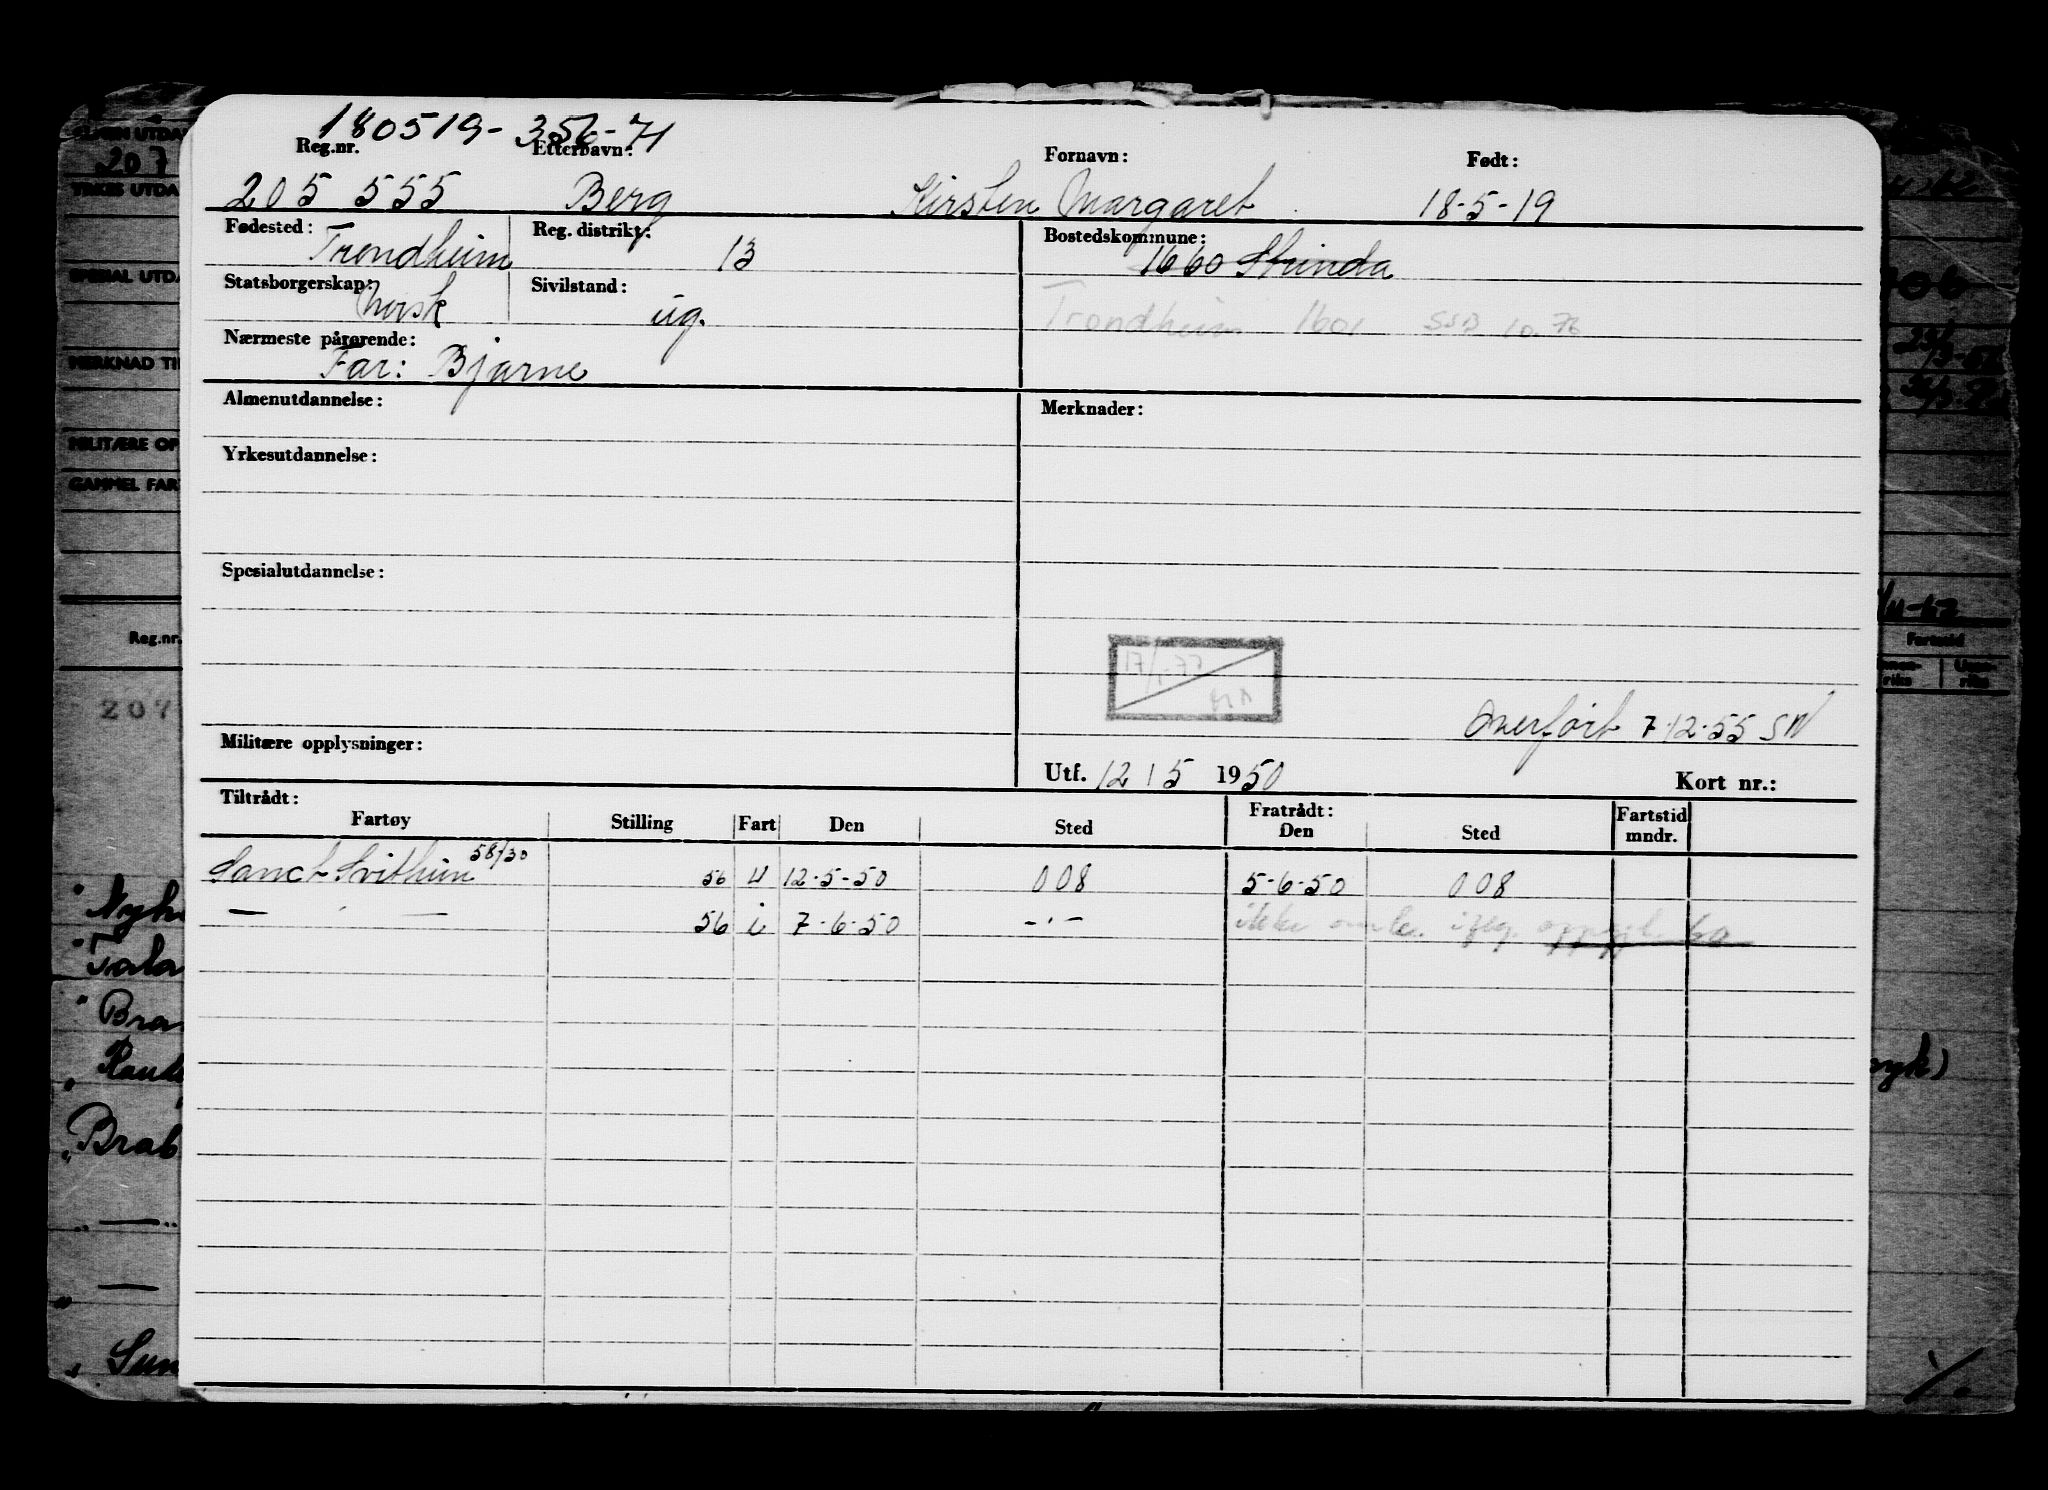 180519-356-71
Reg.nr. Etternavn: Fornavn: Født:
205 555 Berg Kirsten Margaret 18-5-19
Fødested: Trondheim Reg. distrikt: 13 Bostedskommune: 1660 Strinda
Statsborgerskap: norsk Sivilstand: ug. Trondheim 1601 SSB 10.76
Nærmeste pårørende:
Far: Bjarne
Almenutdannelse: Merknader:
Yrkesutdannelse:
Spesialutdannelse:
17/1-77
Overført 7-12-55 SN
Militære opplysninger: Utf. 12 / 5 1950 Kort nr.:
Tiltrådt: Fratrådt: Fartstid
Fartøy Stilling Fart Den Sted Den Sted mndr.
Sanct Svithun 58/30 56 u 12-5-50 008 5-6-50 008
— ' — 56 i 7-6-50 -'- ikke
207
TIKES UTDA
SPESIAL UTDA
MERKNAD TI
MILITÆRE OP
GAMMEL FAR
Reg.nr.
Fartstid
Brat